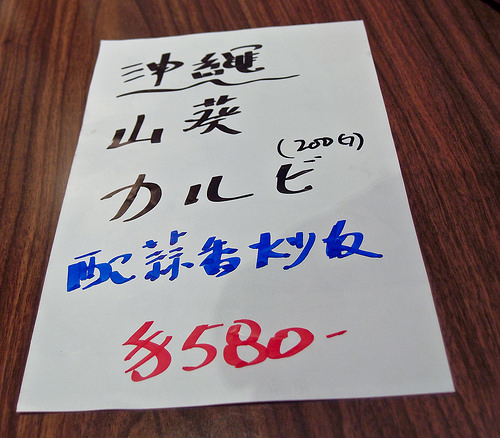 沖繩
山葵
(200G)
カルビ
配蒜香炒飯
$580-